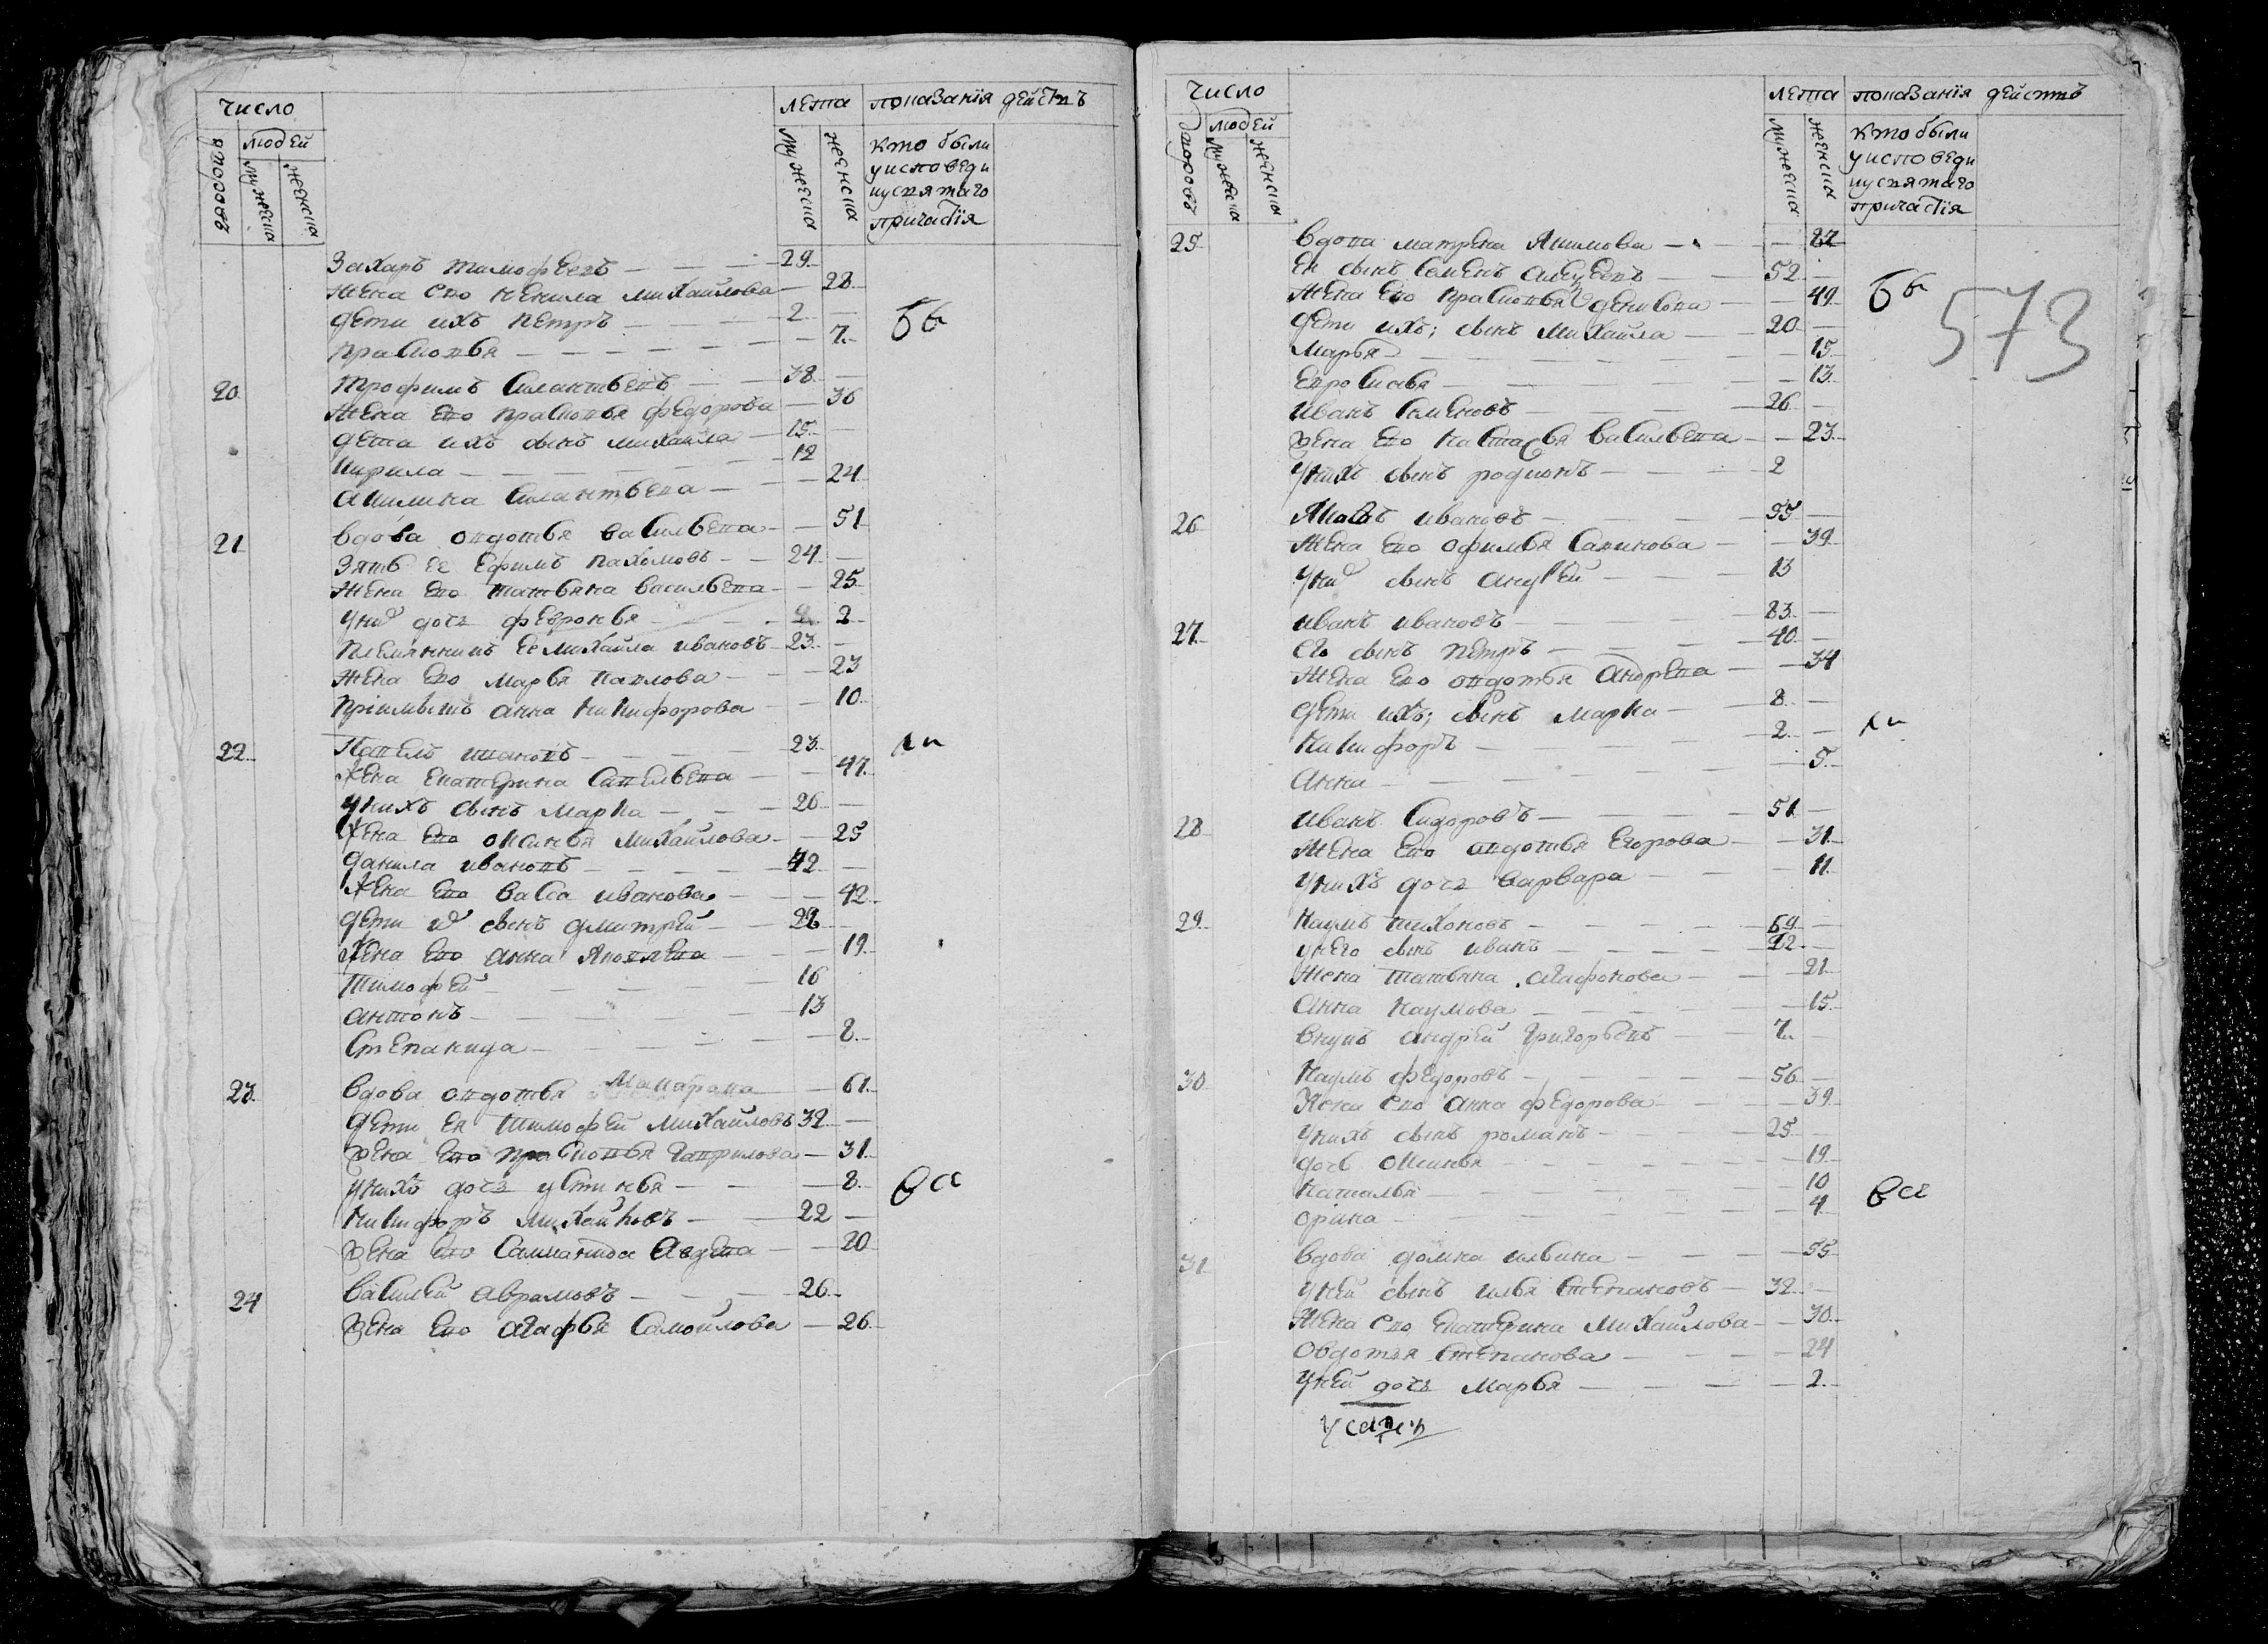 число
людей
дворовъ
мужеска
женска
лета
мужеска
женска
показания действъ
кто были
у исповеди
и у святаго
причастïя
Захаръ тимофеевъ 29
жена ево ненила михайлова 28
дети ихъ петръ 2
прасковья 7
бы
20 трофимъ силантьевъ 38
жена ево прасковья федорова 36
дети ихъ сынъ михайла 15
кирила 12
акилина силантьева 24
21 вдова овдотья васильева 51
зять ее ефимъ пахомовъ 24
жена ево татьяна васильева 25
у них дочь февронья 2
племянникъ ее михайла ивановъ 23
жена ево марья павлова 23
прïимышъ анна никифорова 10
22 Павелъ ивановъ 23
жена екатерина савельева 47
у нихъ сынъ марка 26
жена ево оксинья михайлова 25
данила ивановъ 42
жена ево васса иванова 42
дети их сынъ дмитрей 22
жена ево анна яковлева 19
тимофей 16
антонъ 13
степанида 8
ли
23 вдова овдотья Макарова 61
дети ея тимофей михайловъ 32
жена ево прасковья гаврилова 31
у нихъ дочь устинья 8
никифоръ михайловъ 22
жена ево 20
всѣ
24 василей аврамовъ 26
жена ево агафья самойлова 26
число
людей
дворовъ
мужеска
женска
лета
мужеска
женска
показанïя действъ
кто были
у исповеди
и у святаго
причастïя
573
25 вдова матрена якимова
ея сынъ семенъ 52
жена ево прасковья денисова 49
дети ихъ; сынъ михайла 20
марья 15
евросинья 13
иванъ семеновъ 26
жена ево настасья васильева 23
у нихъ сынъ родионъ 2
бы
26 яковъ ивановъ 55
жена ево офимья савинова 39
у них сынъ андрей 13
27 иванъ ивановъ 83
его сынъ петръ 40
жена ево овдотья андреева 34
дети ихъ; сынъ марка 8
никифоръ 2
анна 5
ли
28 иванъ сидоровъ 51
жена ево овдотья егорова 31
у нихъ дочь варвара 11
29 наумъ тихоновъ 69
у него сынъ иванъ 22
жена татьяна агафонова 21
анна наумова 15
внукъ андрей григорьевъ 7
30 наумъ федоровъ 56
жена ево анна федорова 39
у нихъ сынъ романъ 25
дочь оксинья 19
наталья 10
орина 4
всѣ
31 вдова домна ильина 55
у ней сынъ илья степановъ 32
жена ево екатерина михайлова 30
овдотья степанова 24
у ней дочь марья 2